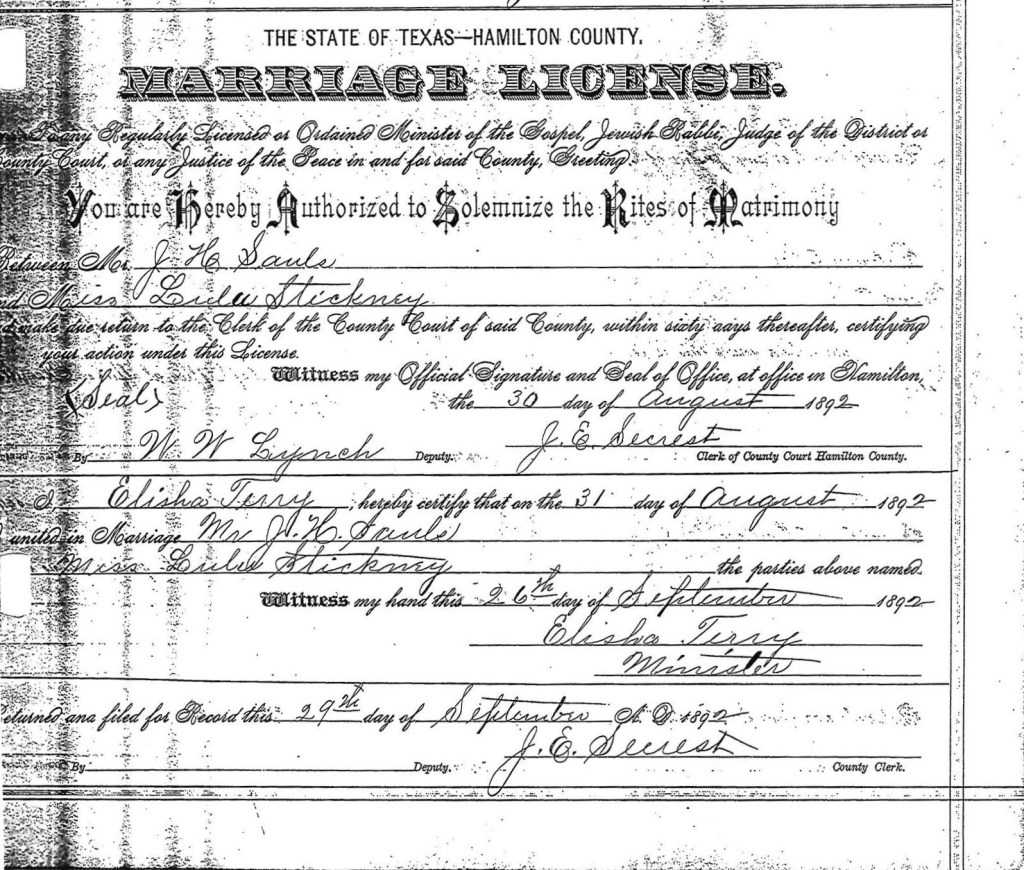 THE STATE OF TEXAS—HAMILTON COUNTY.
MARRIAGE LICENSE.
To any Regularly Licensed or Ordained Minister of the Gospel, Jewish Rabbi, Judge of the District or
County Court, or any Justice of the Peace in and for said County, Greeting:
You are Hereby Authorized to Solemnize the Rites of Matrimony
Between Mr. J. H. Sauls
and Miss Lula Stickney
and make due return to the Clerk of the County Court of said County, within sixty days thereafter, certifying
your action under this License.
Witness my Official Signature and Seal of Office, at office in Hamilton,
(Seal) the 30 day of August 1892
By W W Lynch Deputy. J. E. Secrest
Clerk of County Court Hamilton County.
I Elisha Terry, hereby certify that on the 31 day of August 1892
united in Marriage Mr J. H. Sauls
Miss Lula Stickney the parties above named.
Witness my hand this 26th day of September 1892
Elisha Terry
Minister
Returned and filed for Record this 29th day of September A. D. 1892
J. E. Secrest
By Deputy. County Clerk.